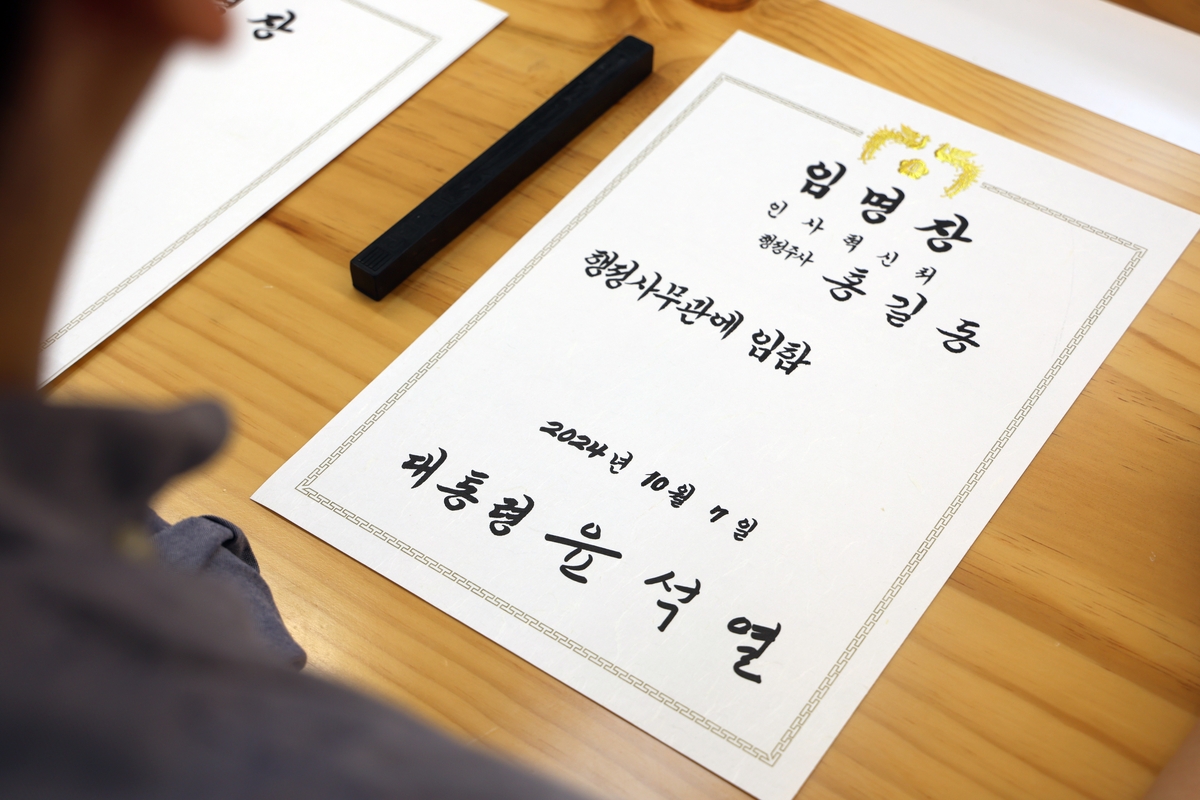 장
임명장
인사혁신처
행정주사 홍길동
행정사무관에 임함
2024년 10월 7일
대통령 윤석열